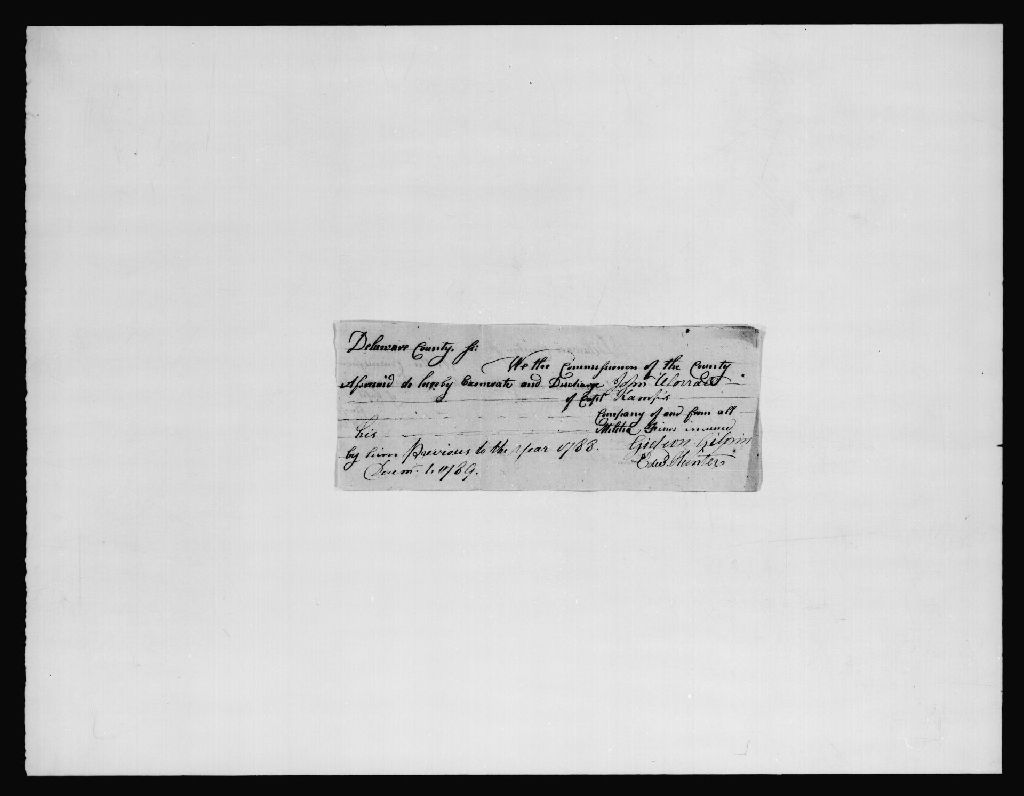 Delaware County. Ss:
We the Commissioners of the County
Aforesaid do hereby Exonerate and Discharge John Worrall
of Capt
Company of and from all
his Militia Fines incurred
by him Previous to the Year 1788.
Edwd. Hunter
1789.